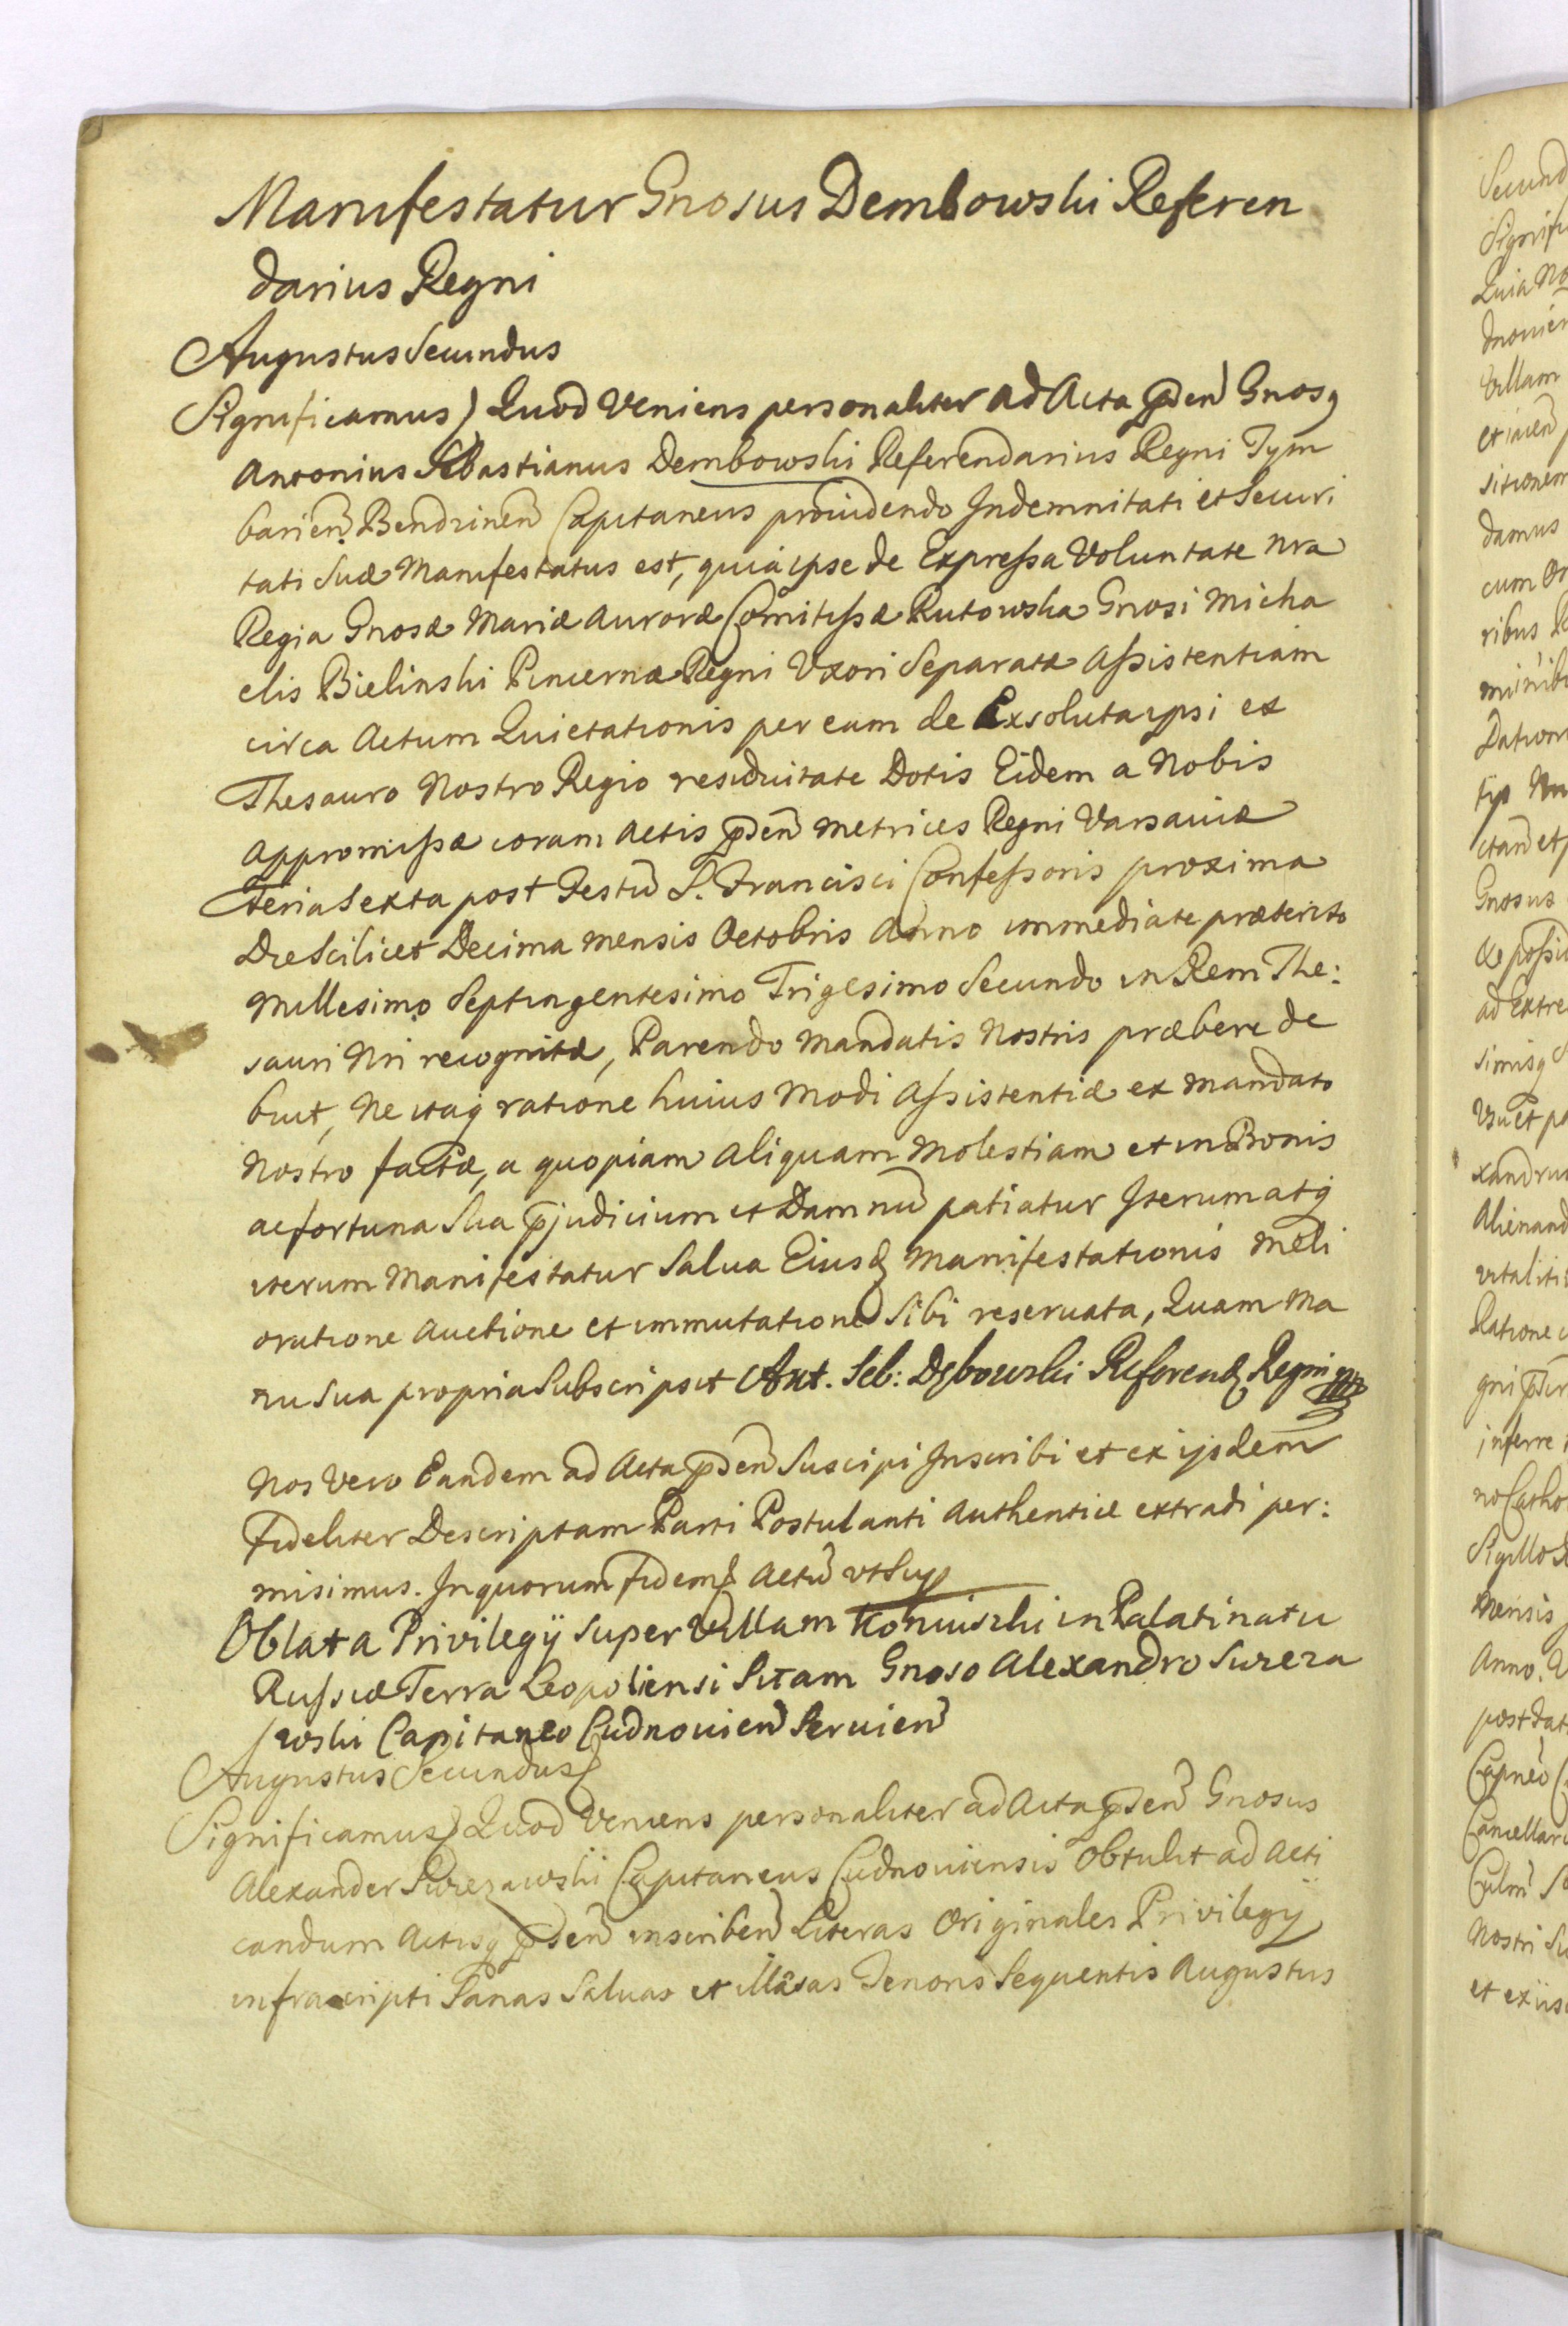 Manifestatur Gnosus Dembowski Referen
darius Regni
Augustus Secundus
Significamus) Quod Veniens personaliter ad Acta pden Gnosq
Antonius Sebastianus Dembowski Referendarius Regni Tym
barien Bendzinen Capitaneus providendo Indemnitati et Securi
tati Suæ Manifestatus est, quia ipse de Expressa Voluntate nra
Regia Gnosæ Mariæ Auroræ Comitissæ Rutowska Gnosi Micha
elis Bielinski Pincernæ Regni Uxori Separatæ Assistentiam
circa Actum Quietationis per eam de Exsoluta ipsi ex
Thesauro Nostro Regio residuitate Dotis Eidem a Nobis
appromissæ coram Actis pden Metrices Regni Varsaviæ
Feria Sexta post Festu S. Francisci Confessoris proxima
Die Scilicet Decima mensis Octobris Anno immediate præterito
Millesimo Septingentesimo Trigesimo Secundo in Rem The:
sauri Nri recognitæ, Parendo Mandatis Nostris præbere de
buit, Ne itaq ratione huius modi Assistentiæ ex mandato
Nostro factæ, a quopiam aliquam Molestiam et in Bonis
ac fortuna Sua pjudicium et Damnu patiatur Iterum atq
iterum Manifestatur Salva Eiusd Manifestationis Meli
oratione Auctione et immutatione Sibi reservata, Quam Ma
nu Sua propria Subscripsit Ant. Seb: Dębowski Referend Regni mp
Nos Vero Eandem ad Acta pden Suscipi Inscribi et ex ijsdem
Fideliter Descriptam Parti Postulanti Authentice extradi per:
misimus. In quorum Fidem Actu ut Sup
Oblata Privilegÿ Super Villam Koniuszki in Palatinatu
Russiæ Terra Leopoliensi Sitam Gnoso Alexandro Swieza
wski Capitaneo Cudnovien Servien
Augustus Secundus
Significamus Quod Veniens personaliter ad Acta pden Gnosus
Alexander Swiezawski Capitaneus Cudnoviensis Obtulit ad Acti
candum Actisq pden inscriben Literas Originales Privilegÿ
infrascripti Sanas Salvas et illæsas Tenoris Sequentis Augustus